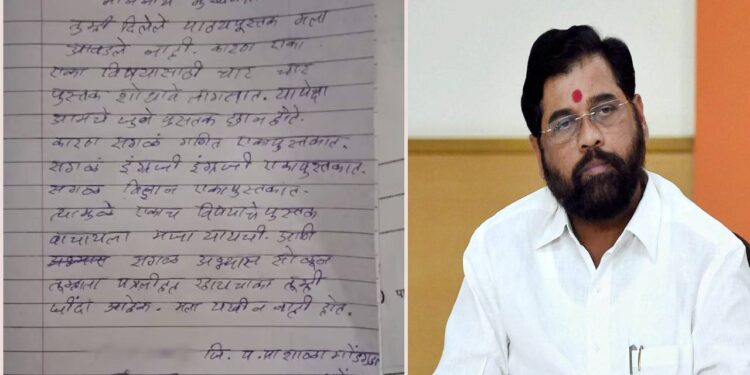 तुम्ही दिलेले पाठ्यपुस्तक मला
आवडले नाही. कारण एका
एका विषयासाठी चार चार
पुस्तक शोधावे लागतात. यापेक्षा
आमचे जुने पुस्तक छान होते.
कारण सगळं गणित एकापुस्तकात.
सगळं इंग्रजी इंग्रजी एकापुस्तकात.
सगळं विज्ञान एकापुस्तकात.
त्यामुळे एकाच विषयाचे पुस्तक
वाचायला मजा यायची. आणि
अभ्यास सगळा अभ्यास सोडून
तुम्हाला पत्र
आहेत. मला
जि. प. प्रा शाळा